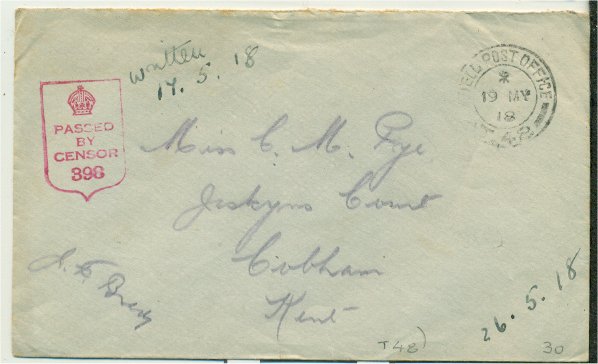 written
14. 5. 18
FIELD POST OFFICE
19 MY
18
PASSED
BY
CENSOR
398
Miss C. M. Pye
Jeskyns Court
Cobham
Kent
26. 5. 18
T48)
30